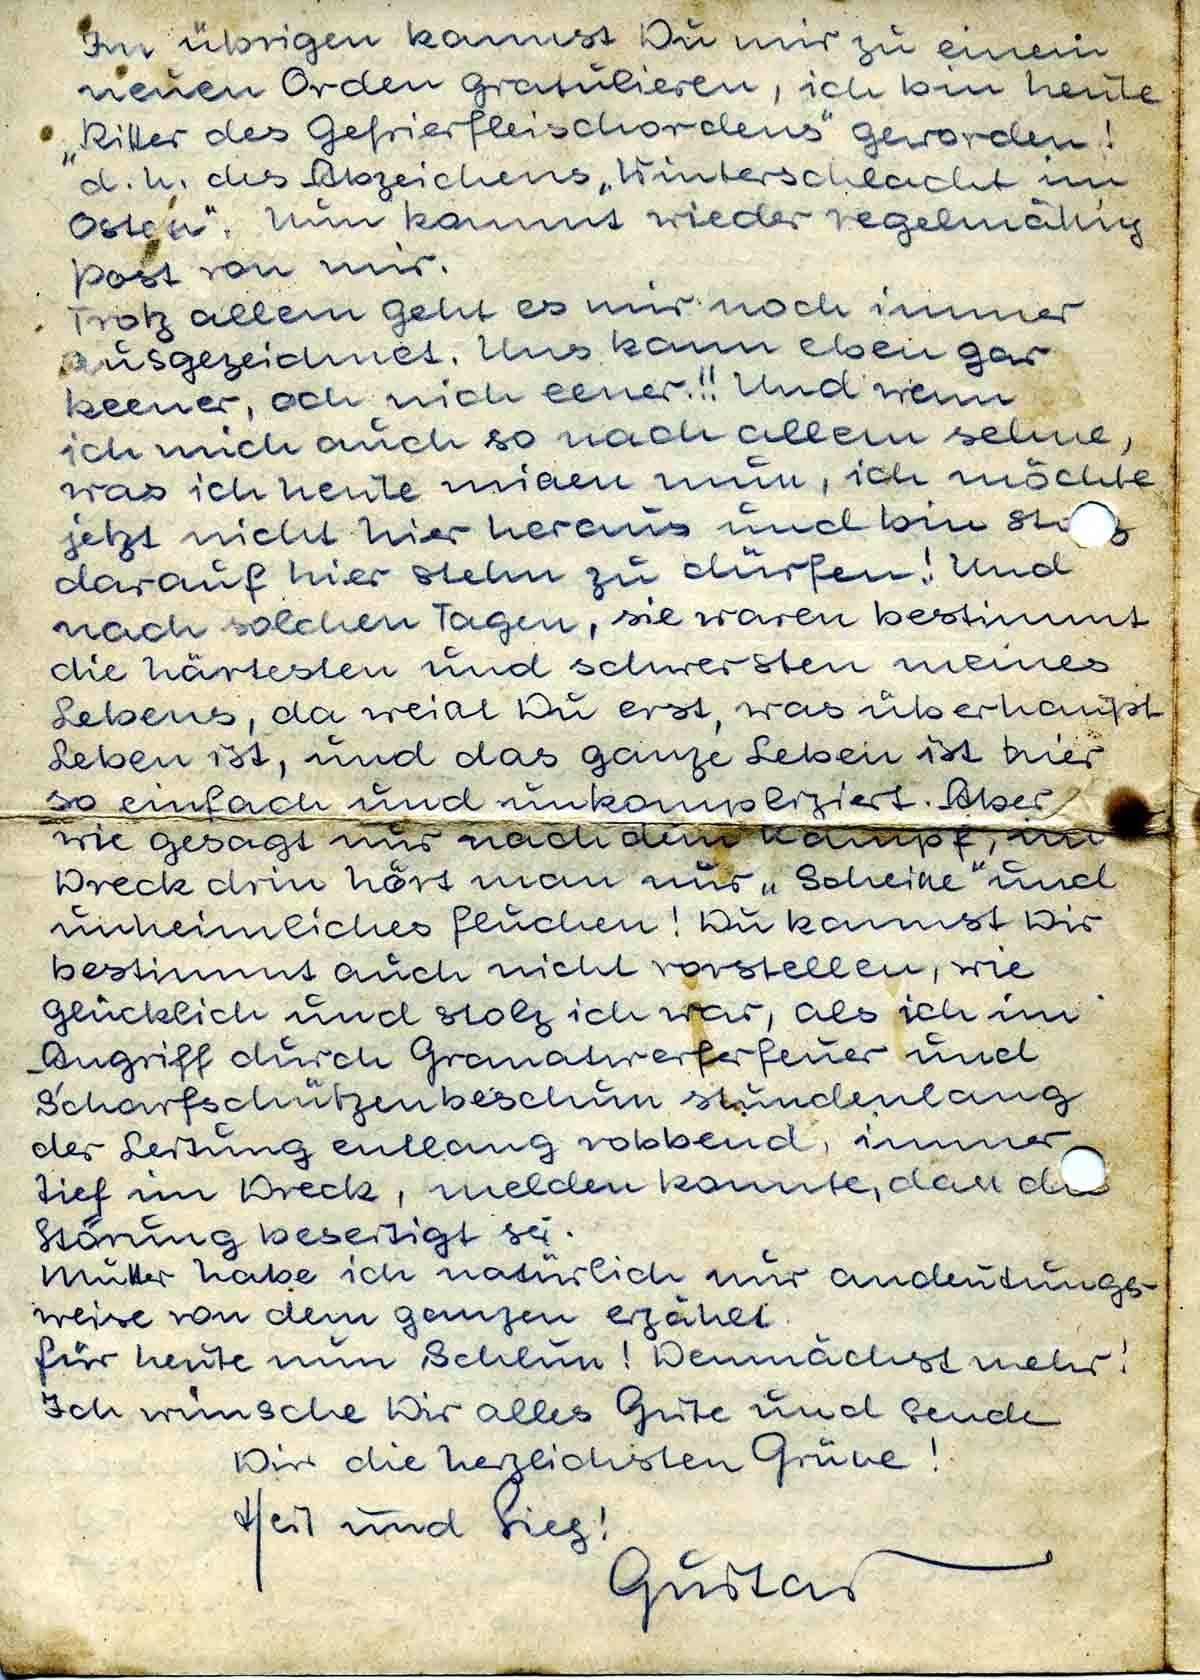 Im übrigen kannst Du mir zu einem
neuen Orden gratulieren, ich bin heute
„Ritter des Gefrierfleischordens" geworden!
d. h. des Abzeichens „Winterschlacht im
Osten". Nun kommt wieder regelmäßig
Post von mir.
Trotz allem geht es mir noch immer
ausgezeichnet. Uns kann eben gar
keener, och nich eener!! Und wenn
ich mich auch so nach allem sehne,
was ich heute missen muß, ich möchte
jetzt nicht hier heraus und bin stolz
darauf hier stehn zu dürfen! Und
nach solchen Tagen, sie waren bestimmt
die härtesten und schwersten meines
Lebens, da weißt Du erst, was überhaupt
Leben ist, und das ganze Leben ist hier
so einfach und unkompliziert. Aber
wie gesagt nur nach dem Kampf, im
Dreck drin hört man nur „Scheiße" und
unheimliches fluchen! Du kannst Dir
bestimmt auch nicht vorstellen, wie
glücklich und stolz ich war, als ich im
Angriff durch Granatwerferfeuer und
Scharfschützenbeschuß stundenlang
der Leitung entlang robbend, immer
tief im Dreck, melden konnte, daß die
Störung beseitigt sei.
Mutter habe ich natürlich nur andeutungs-
weise von dem ganzen erzählt.
für heute nun Schluß! Demnächst mehr!
Ich wünsche Dir alles Gute und sende
Dir die herzlichsten Grüße!
Heil und Sieg!
Gustav